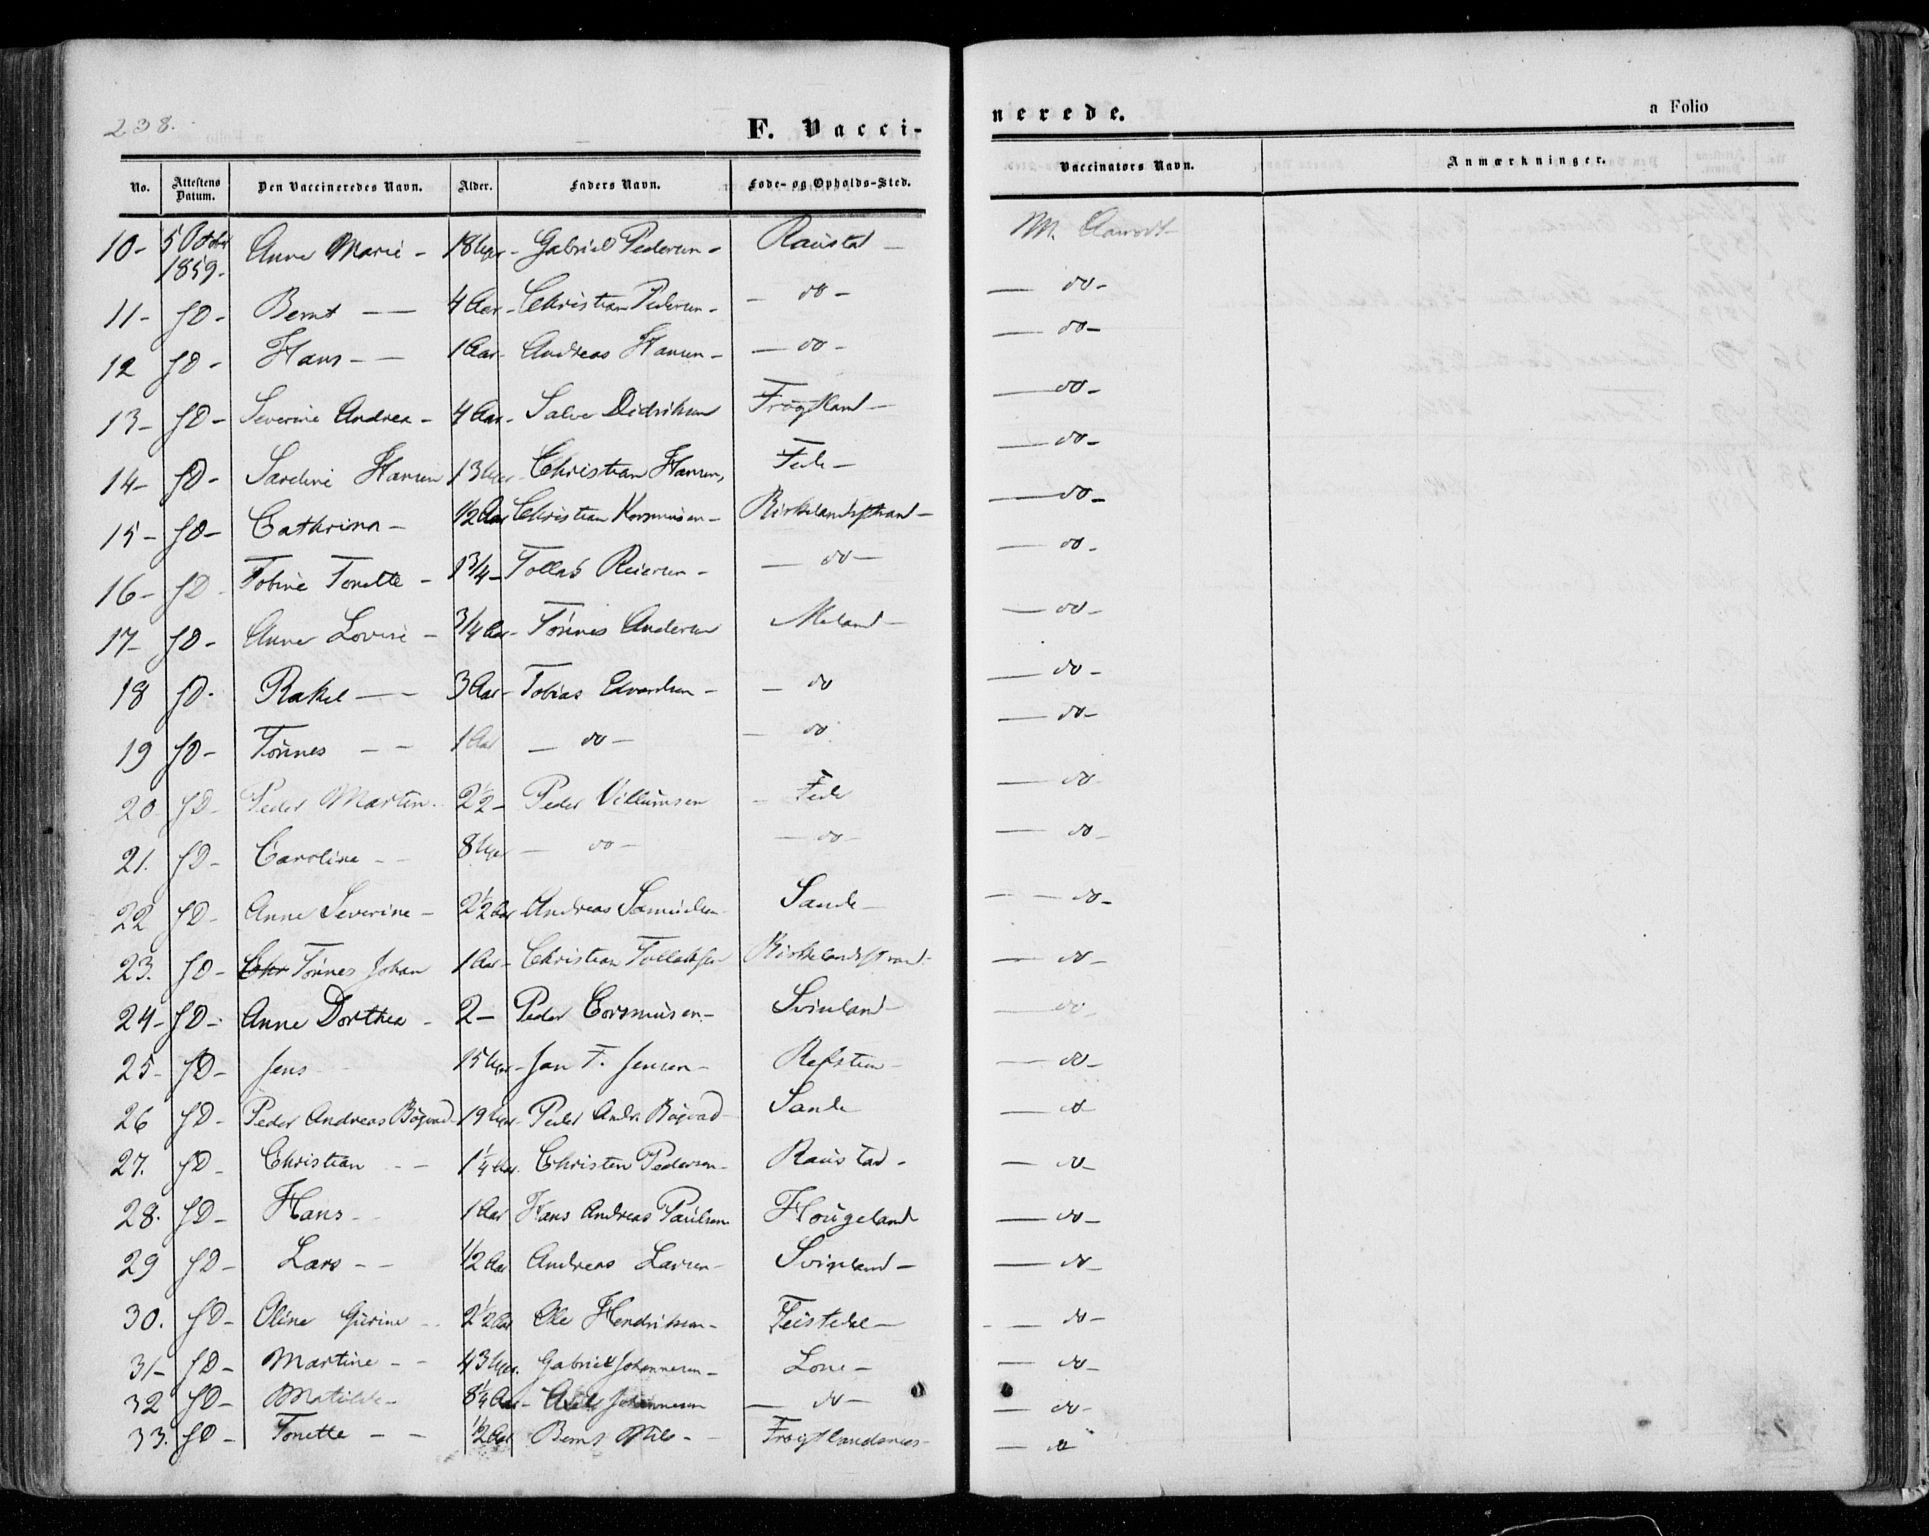 238.
F. Vacci-
nerede.
a Folio
No. Attestens Datum. Den Vaccineredes Navn. Alder. Faders Navn. Føde- og Opholds-Sted. Vaccinators Navn. Anmærkninger.
10- 5 Octobr 1859- Anne Marie - 18 Uger - Gabriel Pedersen - Raustad - M.
11- fD- Bernt - - 4 Aar - Christian Pedersen - - do - - do -
12 fD- Hans - - 1 Aar - Andreas Hansen - - do - - do -
13- fD- Severine Andrea - 4 Aar - Salve Didriksen Frøgtland - - do -
14- fD- Sardine Hansen 13 Uger - Christian Hansen, Fede - - do -
15- fD- Cathrina - 1/2 Aar Christian Korsmusen - Birkelandsstrand - - do -
16- fD- Tobine Tonette - 1 3/4 - Tollas Reiersen - - do - - do -
17- fD- Anne Lovise - 3/4 Aar - Tønnes Andersen Meland - - do -
18 fD- Rakel - - 3 Aar - Tobias Edvardsen - - do - do -
19 fD- Tønnes - - 1 Aar - do - - do - do -
20 fD- Peder Martin - 2 1/2 - Peder Villumsen - Fede - do -
21. fD- Caroline - - 8 Uger - do - - do - - do -
22 fD- Anne Severine - 2 1/2 Aar Andreas Samuelsen Sande - - do -
23. fD- Chr Tønnes Johan 1 Aar - Christian Tollaksen Birkelandsstrand - - do -
24- fD- Anne Dorthea - 2 - Peder Corsmusen - Svinland - - do -
25- fD- Jens 15 Uger - Jan T. Jensen - Refsteen - - do -
26 fD- Peder Andreas Bøgvad - 19 Uger - Peder Andr. Bøgvad - Sande - do
27. fD- Christian - - 1 1/4 Aar. Christen Pedersen - Raustad - - do -
28. fD- Hans - 1 Aar Hans Andreas Paulsen Hougeland - do -
29 fD- Lars - - 1/2 Aar Andreas Larsen - Svinland - - do -
30. fD- Oline Gurine - 2 1/2 Aar Ole Hendriksen - - - do -
31- fD- Martine - - 43 Uger. Gabriel Johannesen - Lone - - do -
32 fD- Matilde - 8 1/4 Aar - Johannesen - do - - do -
33. fD- Tonette - - 1/2 Aar Bernt Nils - Frøgtlandsnes - - do